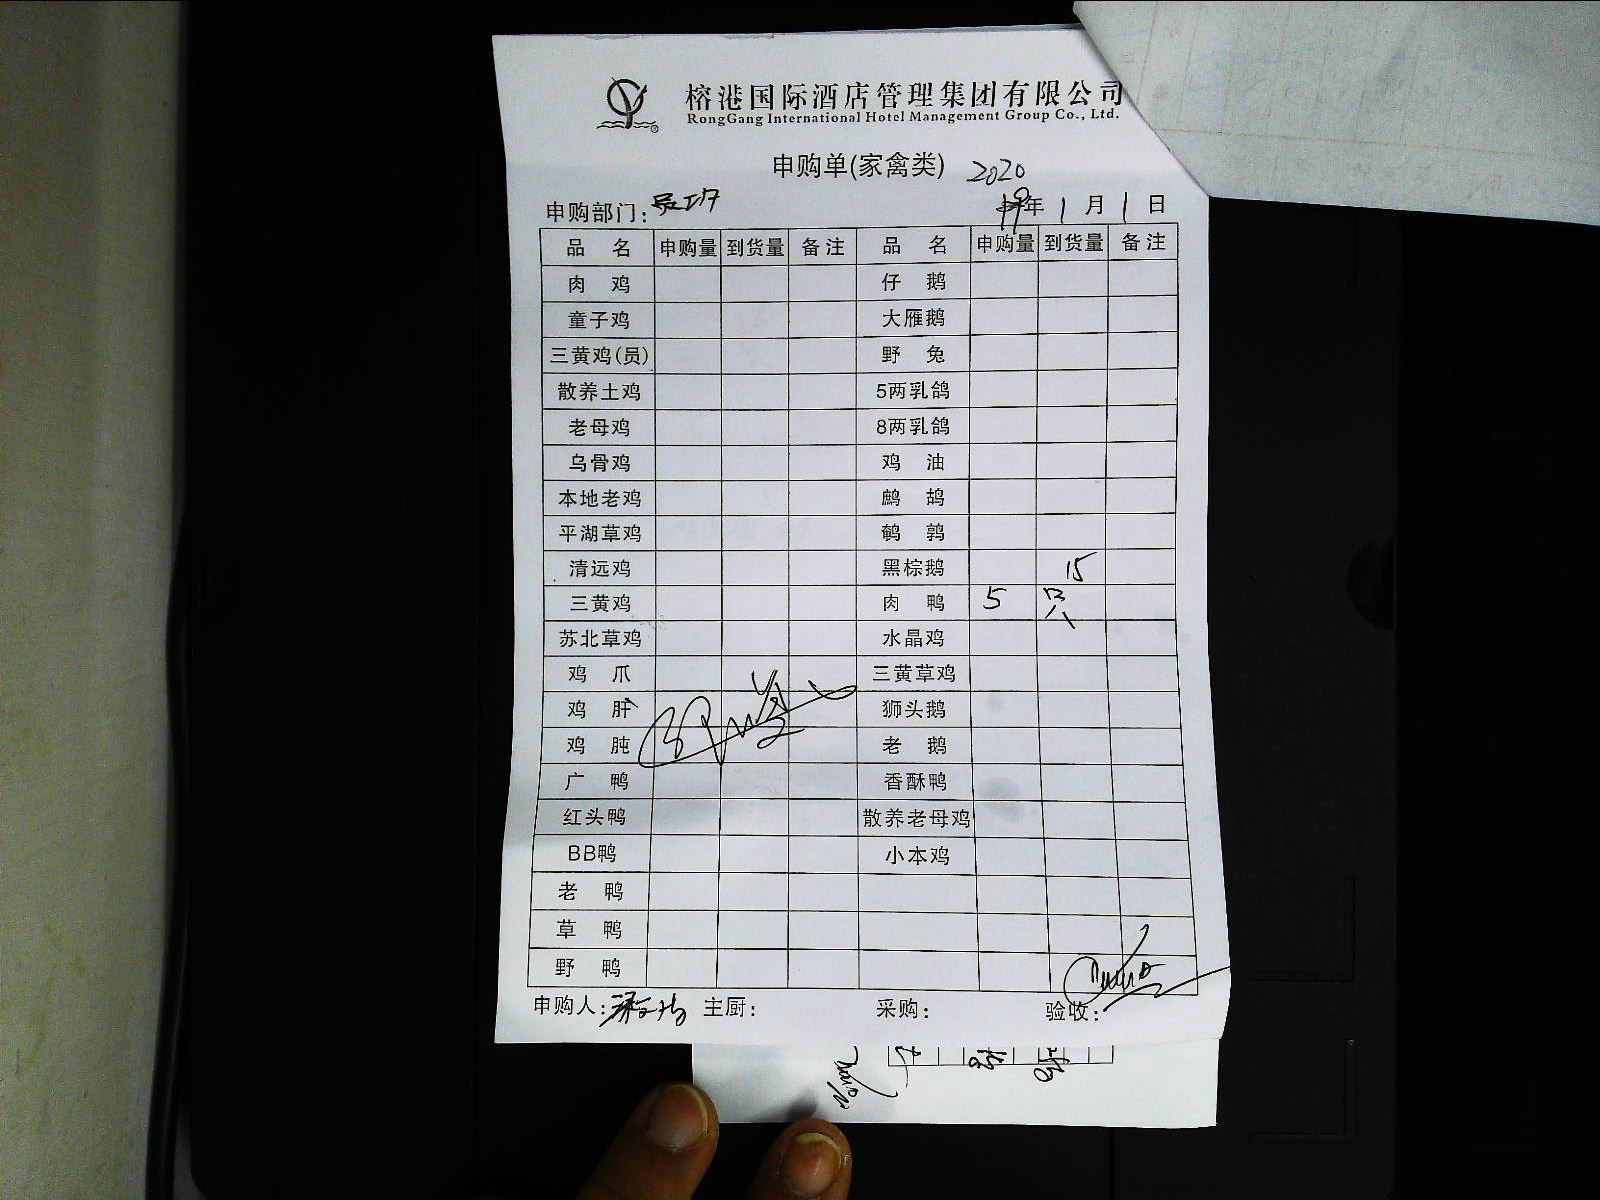 榕港国际酒店管理集团有限公司
RongGang International Hotel Management Group Co., Ltd.
申购单(家禽类) 2020
申购部门: 员工 19年 1月 1日
品名 申购量 到货量 备注 品名 申购量 到货量 备注
肉鸡 仔鹅
童子鸡 大雁鹅
三黄鸡(员) 野兔
散养土鸡 5两乳鸽
老母鸡 8两乳鸽
乌骨鸡 鸡油
本地老鸡 鹧鸪
平湖草鸡 鹌鹑
清远鸡 黑棕鹅 15
三黄鸡 肉鸭 5
苏北草鸡 水晶鸡
鸡爪 三黄草鸡
鸡肝 狮头鹅
鸡肫 老鹅
广鸭 香酥鸭
红头鸭 散养老母鸡
BB鸭 小本鸡
老鸭
草鸭
野鸭
申购人: 主厨: 采购: 验收: